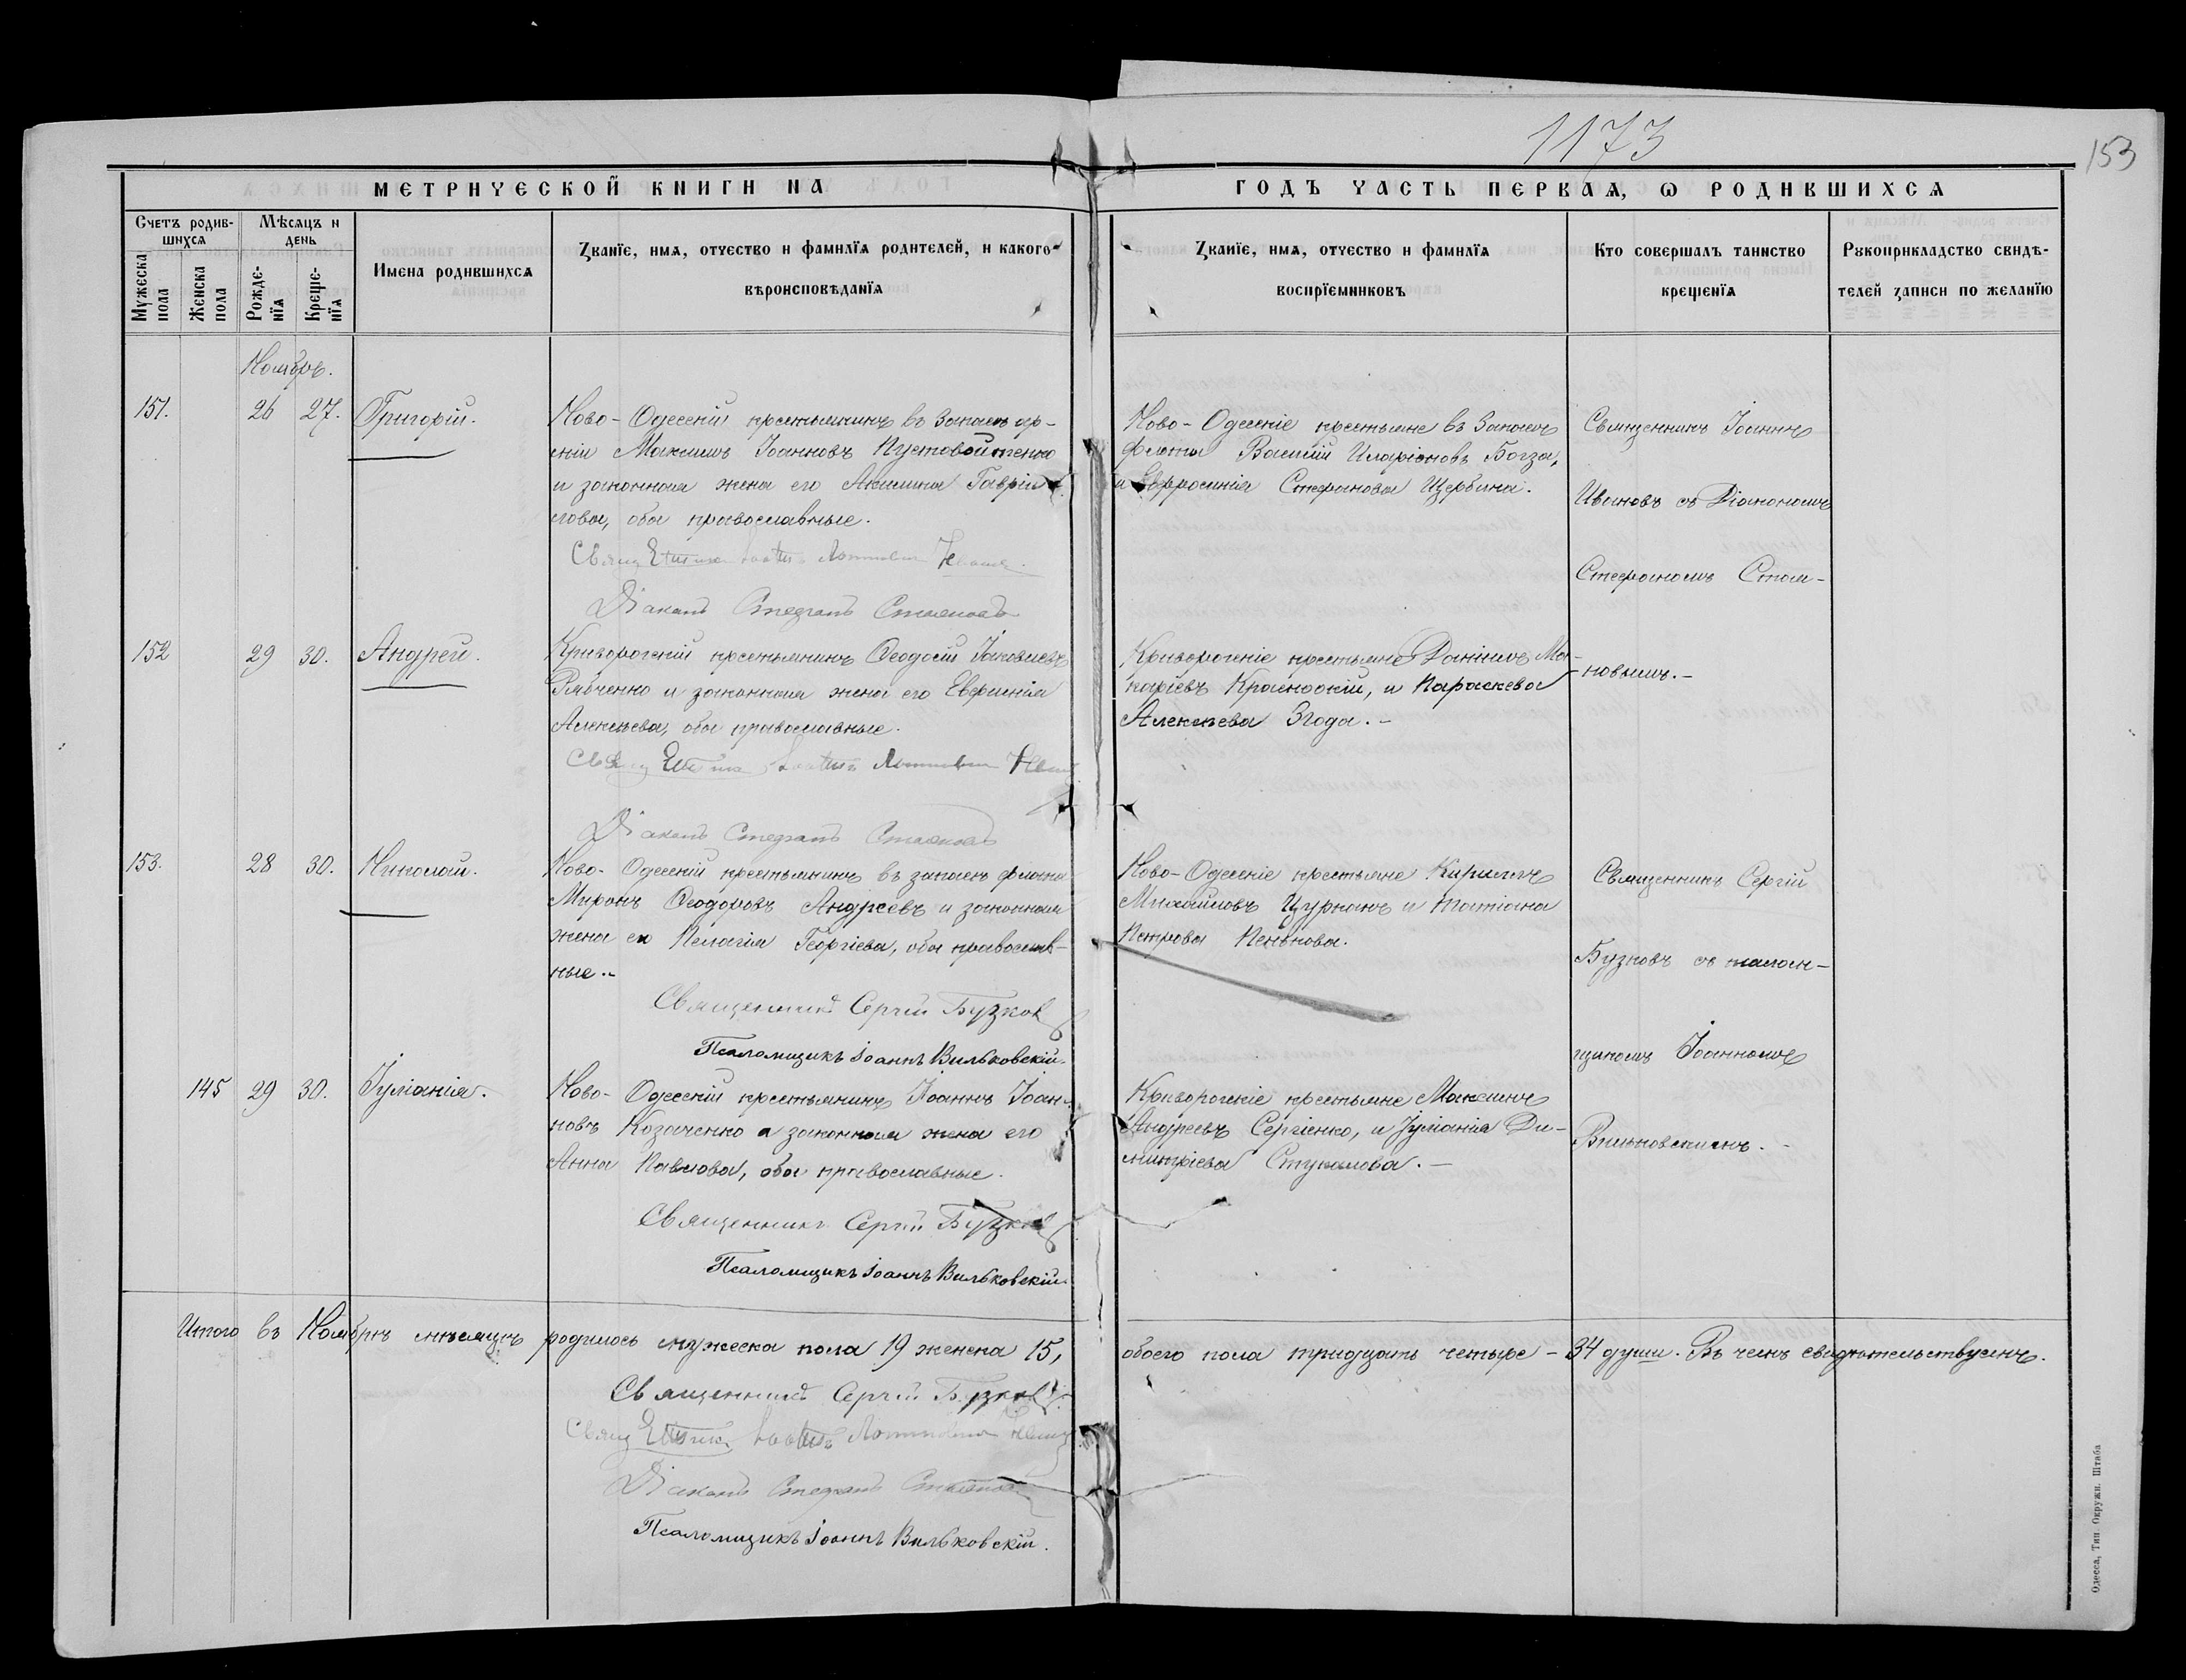 1173
153
МЕТРИЧЕСКОЙ КНИГИ НА
ГОДЪ ЧАСТЬ ПЕРВАЯ, Ѡ РОДИВШИХСЯ
Счетъ родив-
шихся
Мѣсяцъ и
день
Мужеска
пола
Женска
пола
Рожде-
нїя
Креще-
нїя
Имена родившихся
Званїе, имя, отчество и фамилїя родителей, и какого
вѣроисповѣданїя
Званїе, имя, отчество и фамилїя
воспрїемниковъ
Кто совершалъ таинство
крещенїя
Рукоприкладство свидѣ-
телей записи по желанїю
Ноябрь.
151. 26 27. Григорій.
Ново-Одесскій крестьянинъ въ запасѣ ар-
міи Максимъ Іоанновъ Пустовойтенко
и законная жена его Акилина Гаврі-
лова, оба православные.
Свящ
Діаконъ Стефанъ Стояновъ
Ново-Одесскіе крестьяне въ запасѣ
флота Василій Иларіоновъ Богза,
и Евфросинія Стефанова Щербина.
Священникъ Іоаннъ
Ивановъ съ Діакономъ
Стефаномъ Стоя-
новымъ.-
152 29 30. Андрей.
Криворогскій крестьянинъ Ѳеодосій Іаковлевъ
Рябченко и законная жена его Евфимія
Алексѣева, оба православные.
Діаконъ Стефанъ Стояновъ
Криворогскіе крестьяне Даніилъ Ма-
каріевъ Красноокій, и Параскева
Алексѣева Згода.-
153. 28 30. Николай.
Ново-Одесскій крестьянинъ въ запасѣ флота
Миронъ Ѳеодоровъ Андреевъ и законная
жена ео Пелагія Георгіева, оба православ-
ные..
Священникъ Сергій Бузковъ
Псаломщикъ Іоаннъ Вильковскій.
Ново-Одесскіе крестьяне Кириллъ
Михайловъ Цурканъ и Татіана
Петрова Пенькова.
Священникъ Сергій
Бузковъ съ псалом-
щикомъ Іоанномъ
Вильковскимъ.-
145 29 30. Іуліанія.
Ново-Одесскій крестьянинъ Іоаннъ Іоан-
новъ Козаченко и законная жена его
Анна Павлова, оба православные.
Священникъ Сергій Бузковъ
Псаломщикъ Іоаннъ Вильковскій.
Криворогскіе крестьяне Максимъ
Андреевъ Сергіенко, и Іуліанія Ди-
митріева Стукалова.-
Итого въ Ноябрѣ мѣсяцѣ родилось мужеска пола 19 женска 15, обоего пола тридцать четыре - 34 души. Въ чемъ свидѣтельствуемъ.
Священникъ Сергій Бузковъ
Свящ
Діаконъ Стефанъ Стояновъ
Псаломщикъ Іоаннъ Вильковскій.
Одесса, Тип. Окружн. Штаба